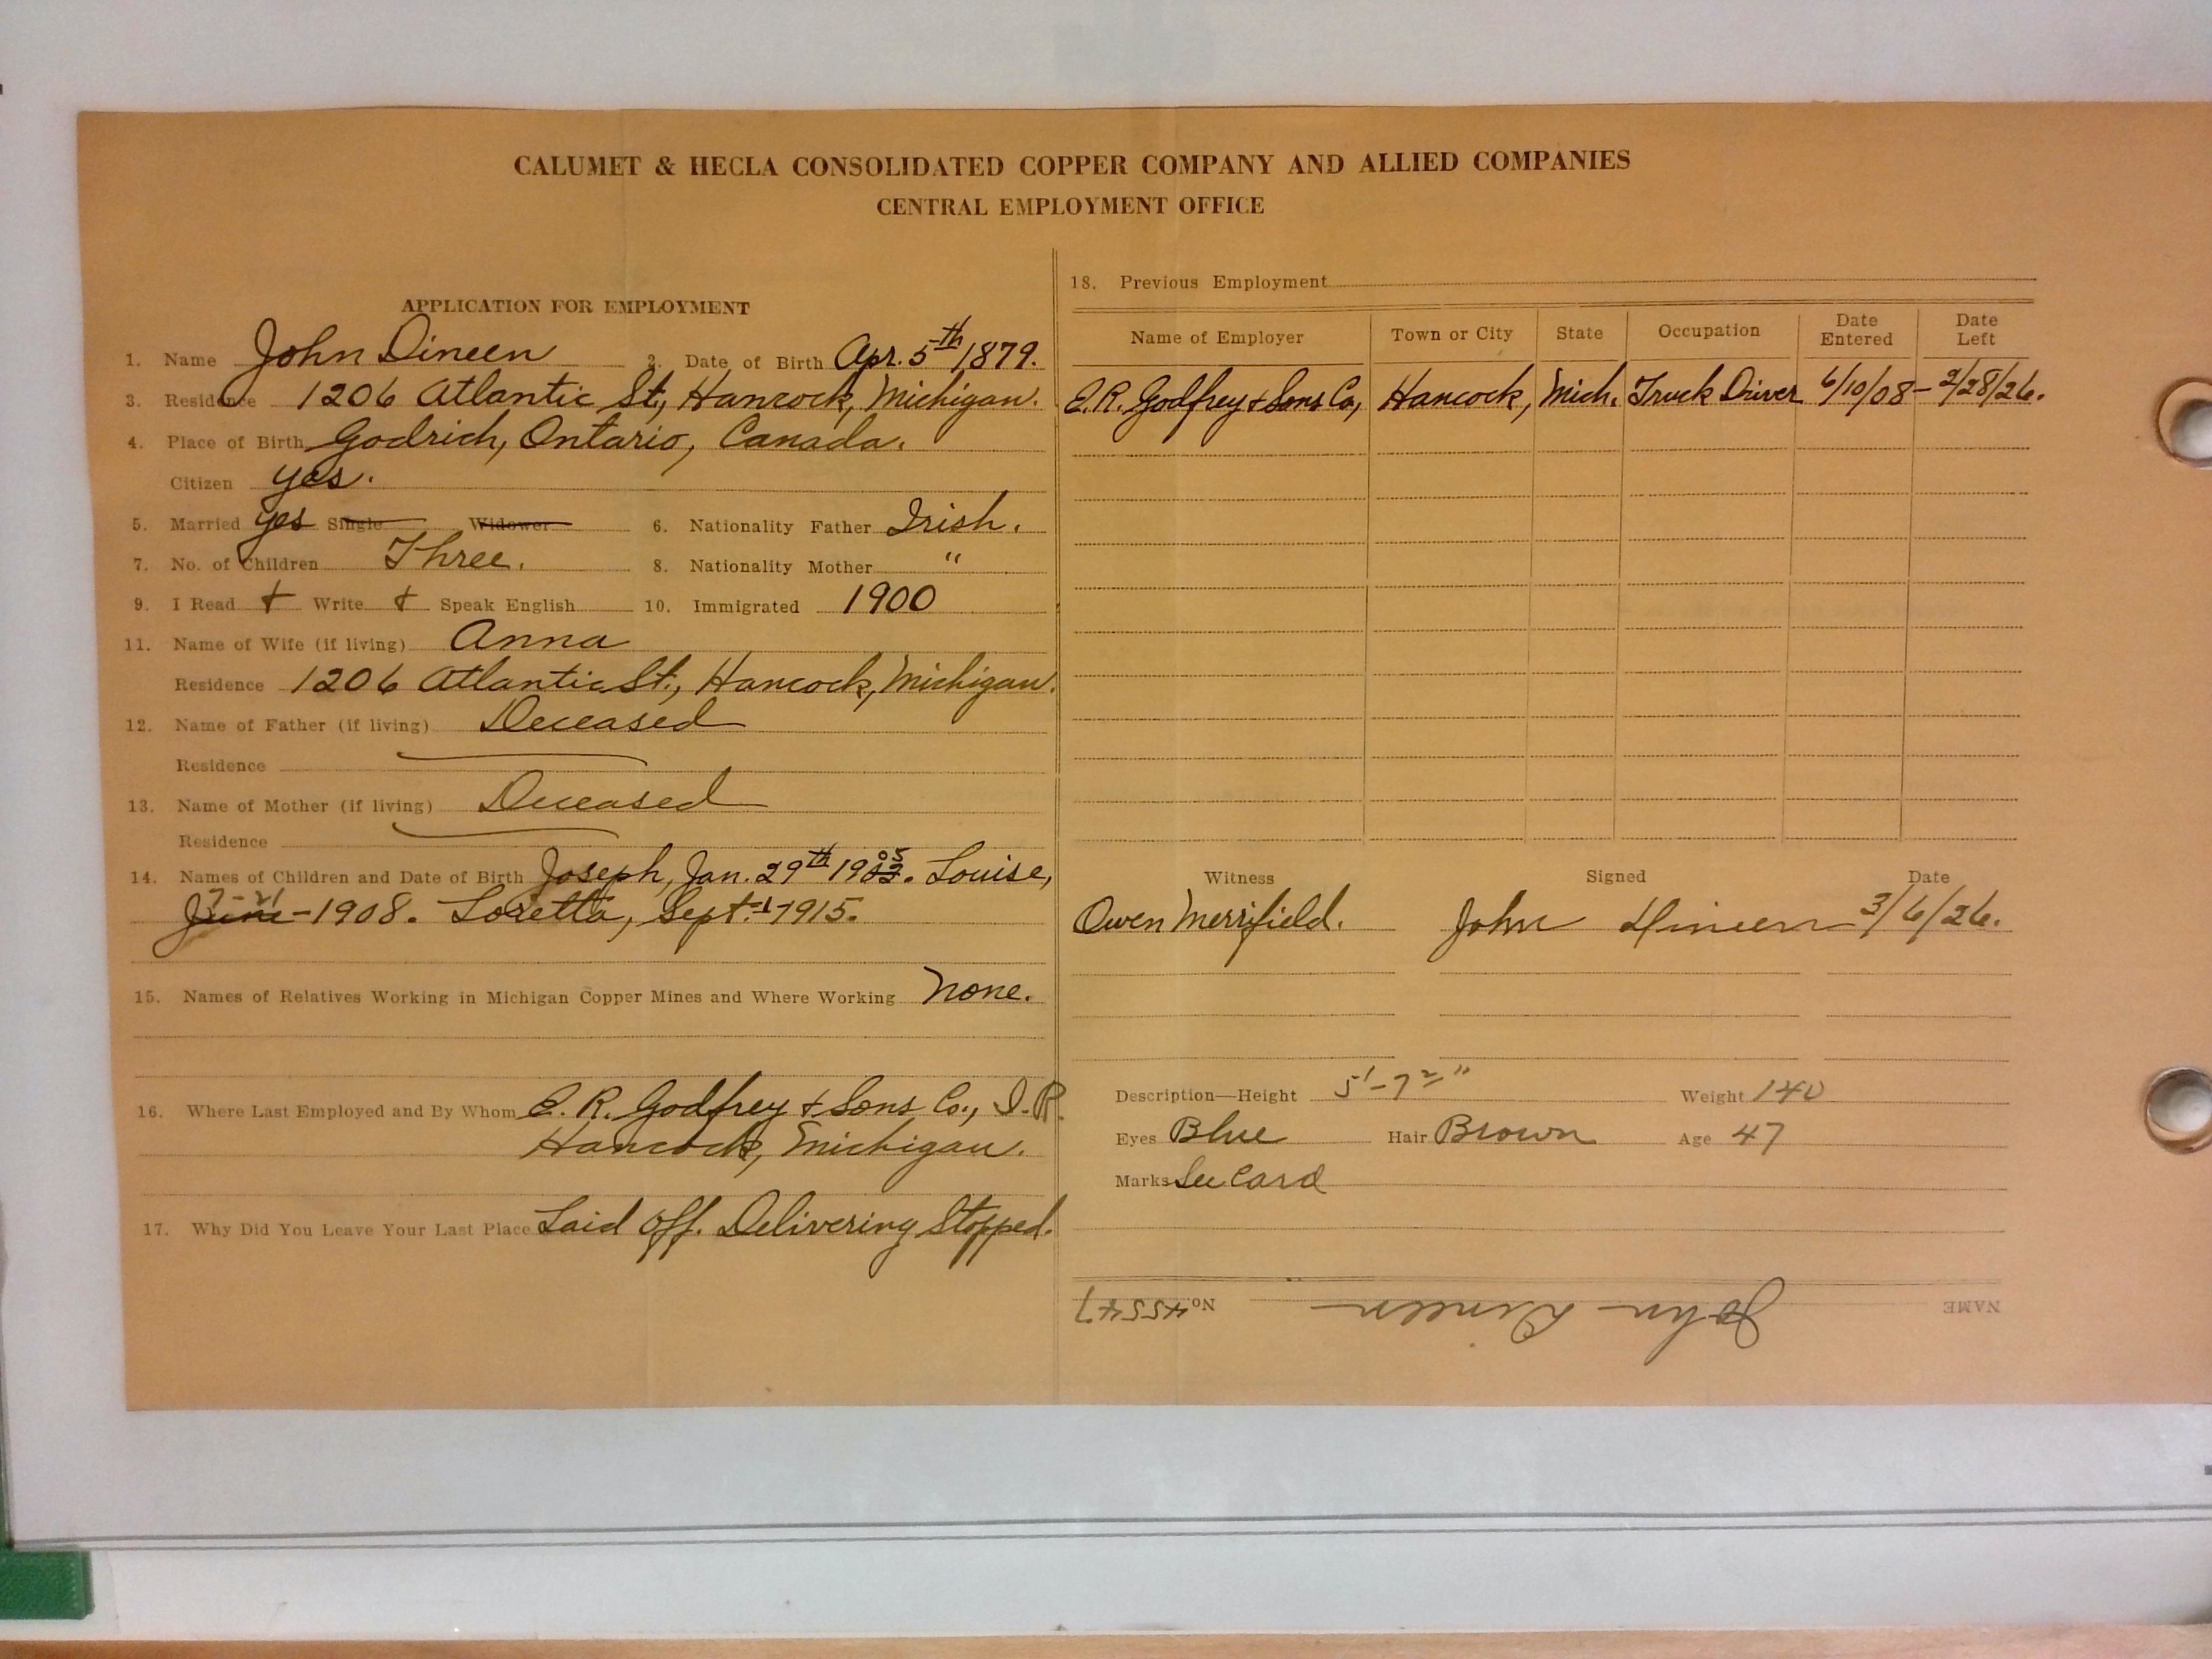 CALUMET & HECLA CONSOLIDATED COPPER COMPANY AND ALLIED COMPANIES
CENTRAL EMPLOYMENT OFFICE
APPLICATION FOR EMPLOYMENT
1. Name John Dineen 2. Date of Birth Apr. 5th 1879.
3. Residence 1206 Atlantic St., Hancock, Michigan.
4. Place of Birth Godrich, Ontario, Canada.
Citizen yes.
5. Married yes Single Widower 6. Nationality Father Irish.
7. No. of Children Three. 8. Nationality Mother "
9. I Read + Write + Speak English 10. Immigrated 1900
11. Name of Wife (if living) Anna
Residence 1206 Atlantic St., Hancock, Michigan.
12. Name of Father (if living) Deceased
Residence
13. Name of Mother (if living) Deceased
Residence
14. Names of Children and Date of Birth Joseph, Jan. 29th 1905. Louise,
7-21
June-1908. Loretta, Sept.-1-1915.
15. Names of Relatives Working in Michigan Copper Mines and Where Working None.
16. Where Last Employed and By Whom E. R. Godfrey + Sons Co., I. R.
Hancock, Michigan.
17. Why Did You Leave Your Last Place Laid off. Delivering Stopped.
18. Previous Employment
Name of Employer Town or City State Occupation Date Entered Date Left
E. R. Godfrey + Sons Co, Hancock, Mich. Truck Driver 6/10/08- 2/28/26.
Witness Signed Date
Owen Merrifield. John Dineen 3/6/26.
Description—Height 5'-7 " Weight 140
Eyes Blue Hair Brown Age 47
Marks See Card
NAME John Dineen No 45547